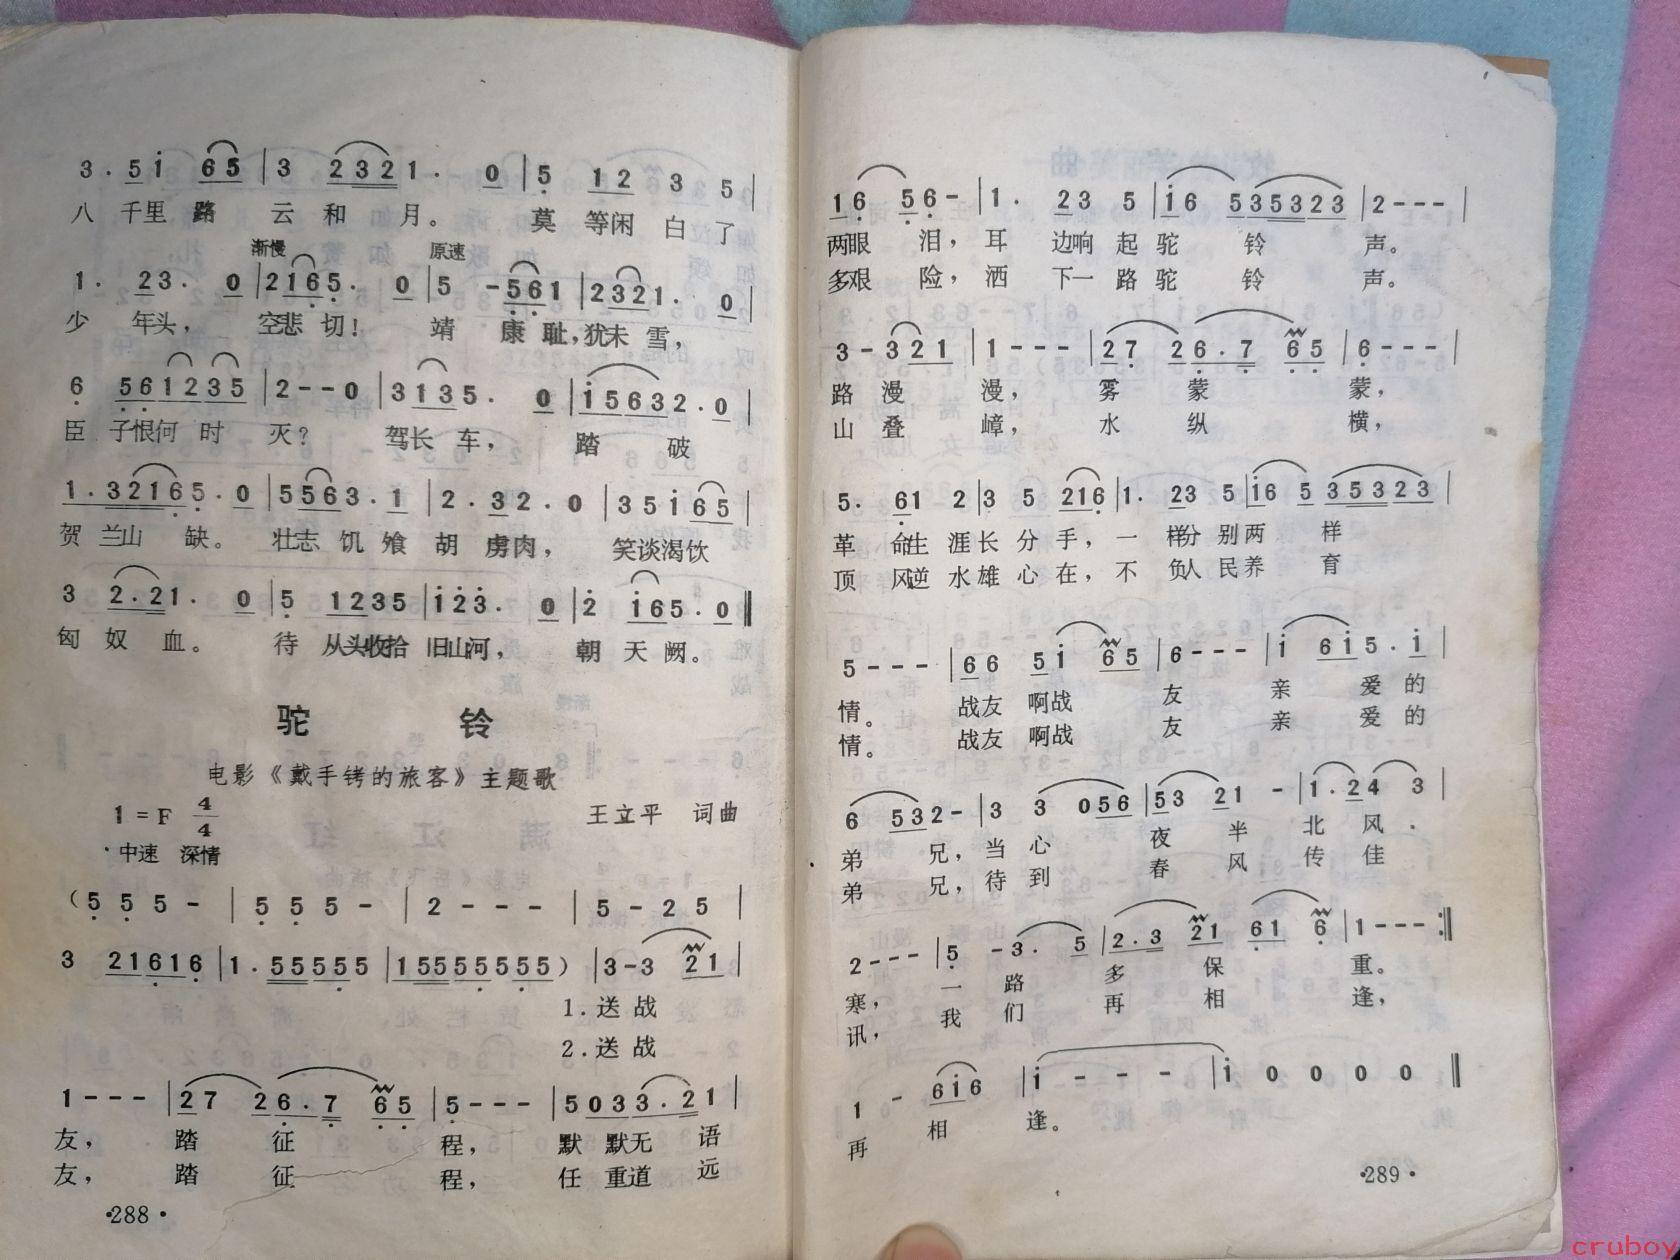 3. 5i 65 | 3 2321. 0 | 5 12 3 5 |
八 千里 路 云 和 月。 莫 等闲 白 了
渐慢 原速
1. 23. 0 | 2165. 0 | 5 -561 | 2321. 0 |
少 年头， 空悲 切！ 靖 康 耻，犹未 雪，
6 561235 | 2--0 | 3135. 0 | i5632.0 |
臣 子恨何 时 灭？ 驾长 车， 踏 破
1.32165.0 | 5563.1 | 2.32.0 | 35i65 |
贺 兰山 缺。 壮志 饥 飧 胡 虏肉， 笑谈渴饮
3 2.21. 0 | 5 1235 | i23. 0 | 2 i65.0 ‖
匈 奴 血。 待 从头收拾 旧山河， 朝 天 阙。
驼 铃
电影《戴手铐的旅客》主题歌
1=F 4/4 王立平 词曲
中速 深情
（5 5 5 - | 5 5 5 - | 2 - - - | 5 - 2 5 |
3 21616 | 1.55555 | 155555555） | 3-3 21 |
1.送 战
2.送 战
1--- | 27 26.7 65 | 5--- | 5033.21 |
友， 踏 征 程， 默 默无 语
友， 踏 征 程， 任 重道 远
·288·
16 56- | 1. 23 5 | i6 535323 | 2--- |
两眼 泪，耳 边响 起 驼 铃 声。
多艰 险，洒 下一 路 驼 铃 声。
3-321 | 1--- | 27 26.7 65 | 6--- |
路 漫 漫， 雾 蒙 蒙，
山 叠 嶂， 水 纵 横，
5. 61 2 | 3 5 216 | 1. 23 5 | i6 5 35323 |
革 命生 涯长 分 手，一 样分 别两 样
顶 风逆 水雄 心 在，不 负人 民养 育
5--- | 66 5i 65 | 6--- | i 6i5.i |
情。 战友 啊战 友 亲 爱 的
情。 战友 啊战 友 亲 爱 的
6 532- | 3 3 056 | 53 21 - | 1.24 3 |
弟 兄，当 心 夜 半 北 风
弟 兄，待 到 春 风 传 佳
2--- | 5 -3. 5 | 2.3 21 61 6 | 1---:‖
寒， 一 路 多 保 重。
讯， 我 们 再 相 逢，
1 - 6i6 | i - - - | i 0 0 0 0 ‖
再 相 逢。
·289·
cruboy